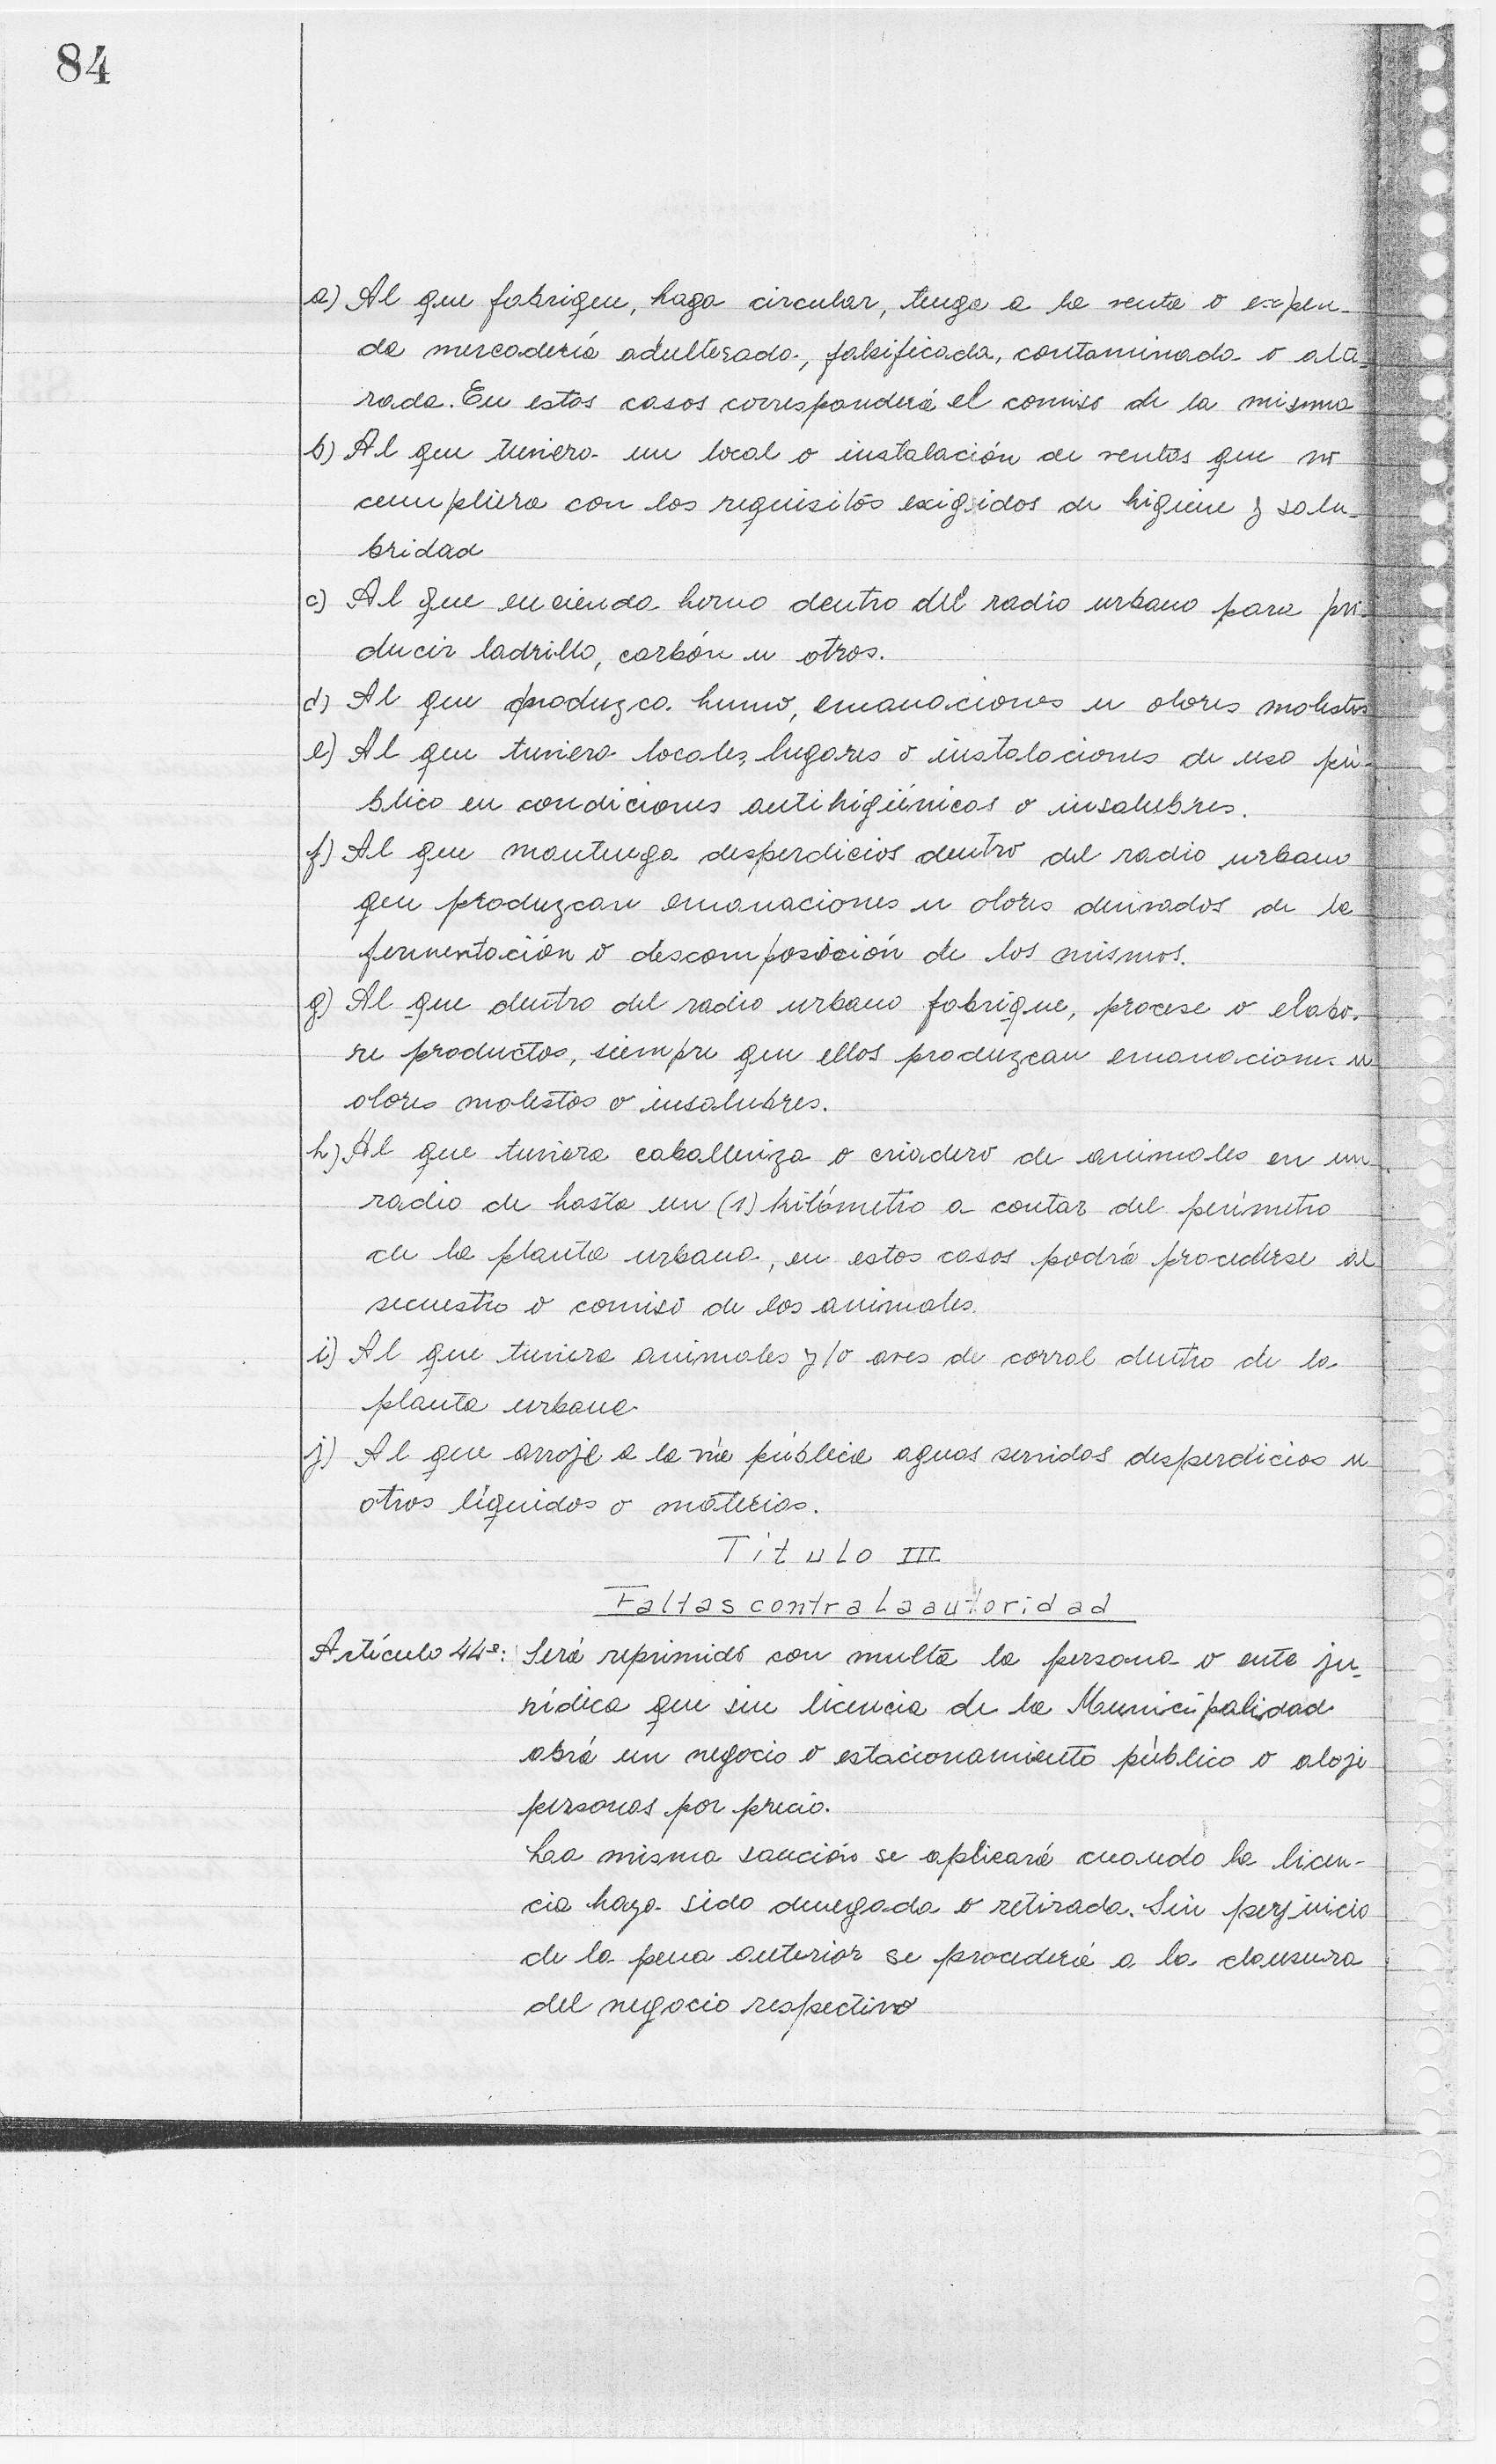 84
a) Al que fabrique, haga circular, tenga a la venta o expen-
da mercadería adulterada, falsificada, contaminada o alte-
rada. En estos casos corresponderá el comiso de la misma
b) Al que tuviera un local o instalación de ventas que no
cumpliera con los requisitos exigidos de higiene y salu-
bridad
c) Al que encienda horno dentro del radio urbano para pro-
ducir ladrillo, carbón u otros.
d) Al que produzca humo, emanaciones u olores molestos
e) Al que tuviera locales, lugares o instalaciones de uso pú-
blico en condiciones antihigiénicas o insalubres.
f) Al que mantenga desperdicios dentro del radio urbano
que produzcan emanaciones u olores derivados de la
fermentación o descomposición de los mismos.
g) Al que dentro del radio urbano fabrique, procese o elabo-
re productos, siempre que ellos produzcan emanaciones u
olores molestos o insalubres.
h) Al que tuviera caballeriza o criadero de animales en un
radio de hasta un (1) kilómetro a contar del perímetro
de la planta urbana, en estos casos podrá procederse al
secuestro o comiso de los animales.
i) Al que tuviera animales y/o aves de corral dentro de la
planta urbana
j) Al que arroje a la vía pública aguas servidas desperdicios u
otros líquidos o materias.
Título III
Faltas contra la autoridad
Artículo 44º: Será reprimido con multa la persona o ente ju-
rídica que sin licencia de la Municipalidad
abrá un negocio o estacionamiento público o aloje
personas por precio.
Laa misma sanción se aplicará cuando la licen-
cia haya sido denegada o retirada. Sin perjuicio
de la pena anterior se procederá a la clausura
del negocio respectivo